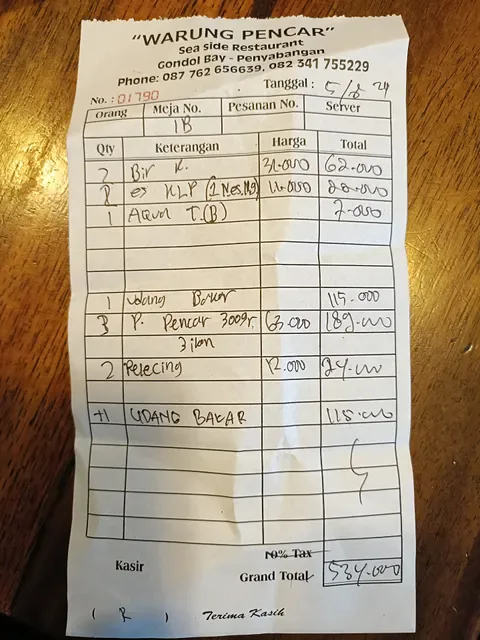 "WARUNG PENCAR"
Sea Side Restaurant
Gondol Bay - Penyabangan
Phone: 087 762 656639, 082 341 755229
Tanggal : 5/8 24
No. : 01790
Orang Meja No. Pesanan No. Server
1B
Qty Keterangan Harga Total
2 Bir K. 31.000 62.000
2 es KLP 11.000 22.000
1 Aqua T.(B) 7.000
1 udang Bakar 115.000
3 P. Pencar 300gr. 63.000 189.000
3 ikan
2 Pelecing 12.000 24.000
+1 UDANG BAKAR 115.000
10% Tax
Kasir
Grand Total 534.000
( R )
Terima Kasih